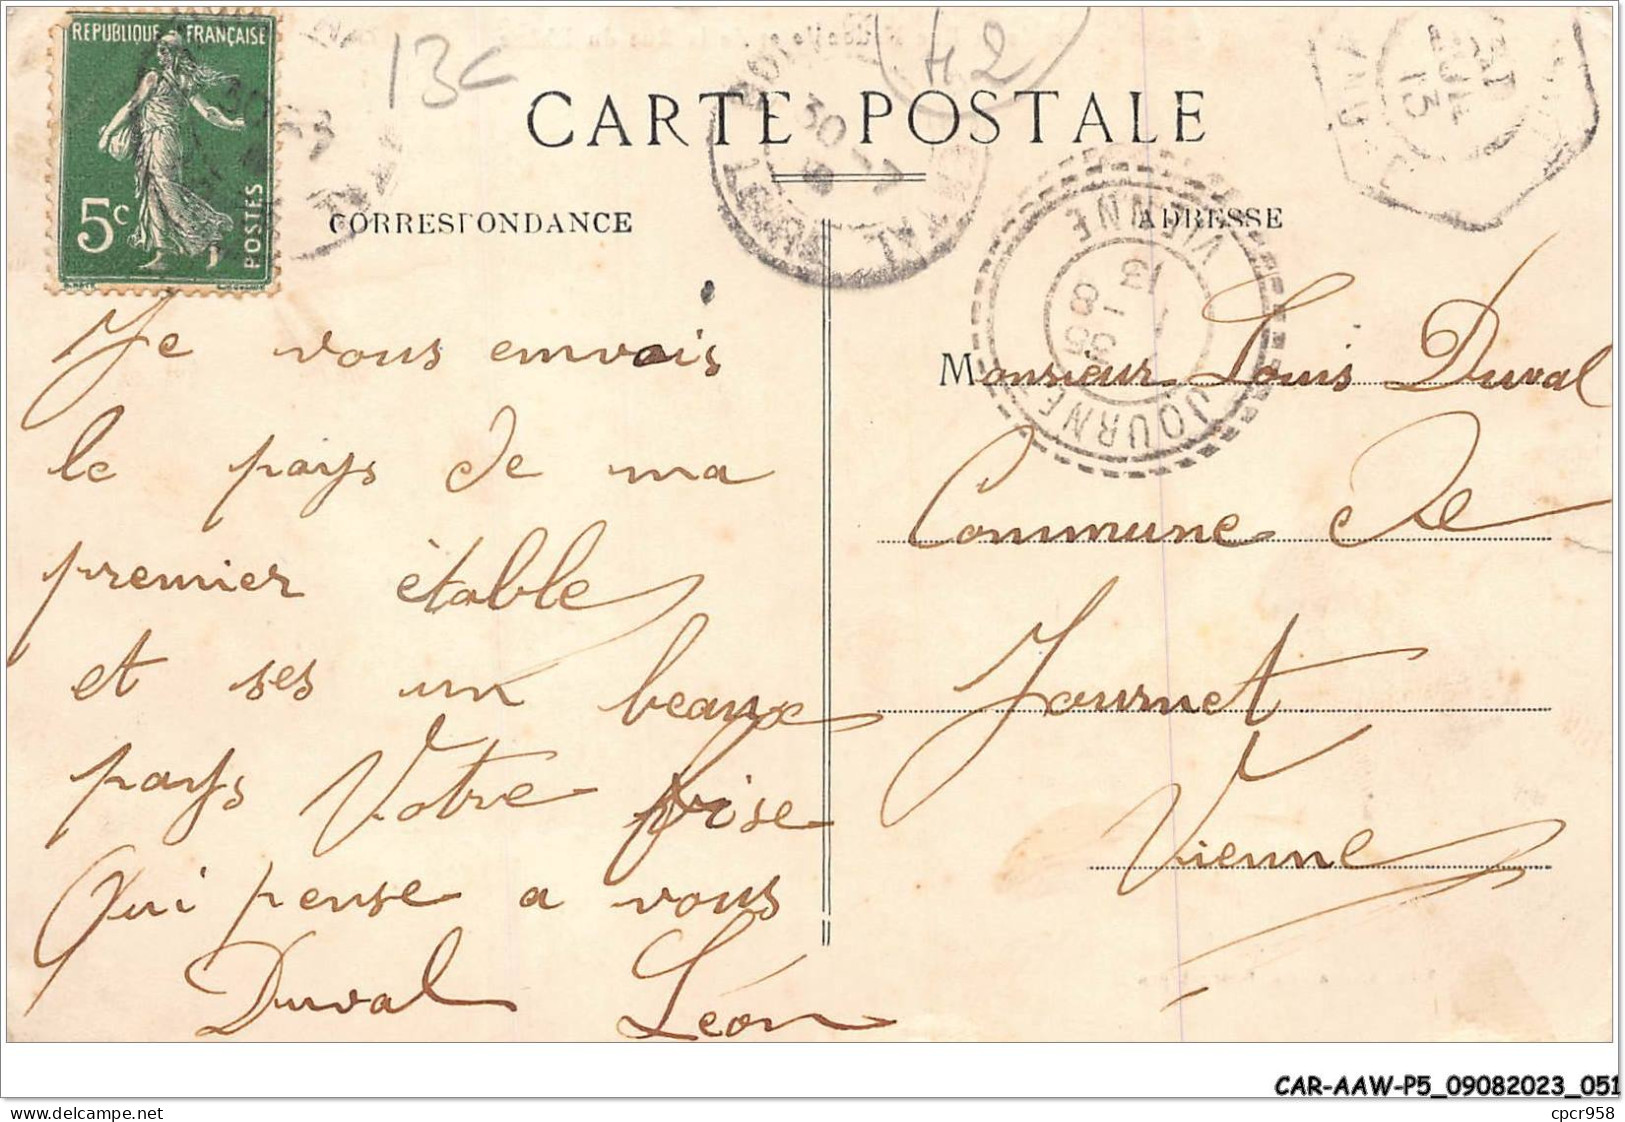 REPUBLIQUE FRANÇAISE
5c
POSTES
13c
42
CARTE POSTALE
CORRESPONDANCE
ADRESSE
30 -7
JOURNET
VIENNE
13
Je vous envoais
le pays de ma
premier ètable
et ses un beaux
pays Votre frise
Qui pense a vous
Duval Léon
Monsieur Louis Duval
Commune de
Journet
Vienne
CAR-AAW-P5_09082023_051
cpcr958